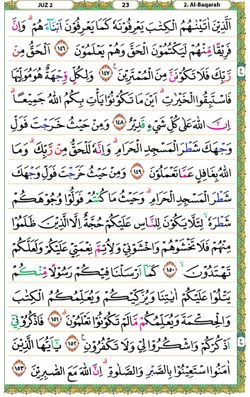 JUZ 2 23 2. Al-Baqarah
اَلَّذِيْنَ اٰتَيْنٰهُمُ الْكِتٰبَ يَعْرِفُوْنَهٗ كَمَا يَعْرِفُوْنَ اَبْنَآءَهُمْ ۗ وَاِنَّ
فَرِيْقًا مِّنْهُمْ لَيَكْتُمُوْنَ الْحَقَّ وَهُمْ يَعْلَمُوْنَ ۝١٤٦ اَلْحَقُّ مِنْ
رَّبِّكَ فَلَا تَكُوْنَنَّ مِنَ الْمُمْتَرِيْنَ ۝١٤٧ وَلِكُلٍّ وِّجْهَةٌ هُوَ مُوَلِّيْهَا
فَاسْتَبِقُوا الْخَيْرٰتِ ۗ اَيْنَ مَا تَكُوْنُوْا يَأْتِ بِكُمُ اللّٰهُ جَمِيْعًا ۗ
اِنَّ اللّٰهَ عَلٰى كُلِّ شَيْءٍ قَدِيْرٌ ۝١٤٨ وَمِنْ حَيْثُ خَرَجْتَ فَوَلِّ
وَجْهَكَ شَطْرَ الْمَسْجِدِ الْحَرَامِ ۗ وَاِنَّهٗ لَلْحَقُّ مِنْ رَّبِّكَ ۗ وَمَا
اللّٰهُ بِغَافِلٍ عَمَّا تَعْمَلُوْنَ ۝١٤٩ وَمِنْ حَيْثُ خَرَجْتَ فَوَلِّ وَجْهَكَ
شَطْرَ الْمَسْجِدِ الْحَرَامِ ۗ وَحَيْثُ مَا كُنْتُمْ فَوَلُّوْا وُجُوْهَكُمْ
شَطْرَهٗ ۙ لِئَلَّا يَكُوْنَ لِلنَّاسِ عَلَيْكُمْ حُجَّةٌ اِلَّا الَّذِيْنَ ظَلَمُوْا
مِنْهُمْ فَلَا تَخْشَوْهُمْ وَاخْشَوْنِيْ وَلِاُتِمَّ نِعْمَتِيْ عَلَيْكُمْ وَلَعَلَّكُمْ
تَهْتَدُوْنَ ۝١٥٠ كَمَآ اَرْسَلْنَا فِيْكُمْ رَسُوْلًا مِّنْكُمْ
يَتْلُوْا عَلَيْكُمْ اٰيٰتِنَا وَيُزَكِّيْكُمْ وَيُعَلِّمُكُمُ الْكِتٰبَ
وَالْحِكْمَةَ وَيُعَلِّمُكُمْ مَّا لَمْ تَكُوْنُوْا تَعْلَمُوْنَ ۝١٥١ فَاذْكُرُوْنِيْٓ
اَذْكُرْكُمْ وَاشْكُرُوْا لِيْ وَلَا تَكْفُرُوْنِ ۝١٥٢ يٰٓاَيُّهَا الَّذِيْنَ
اٰمَنُوا اسْتَعِيْنُوْا بِالصَّبْرِ وَالصَّلٰوةِ ۗ اِنَّ اللّٰهَ مَعَ الصّٰبِرِيْنَ ۝١٥٣